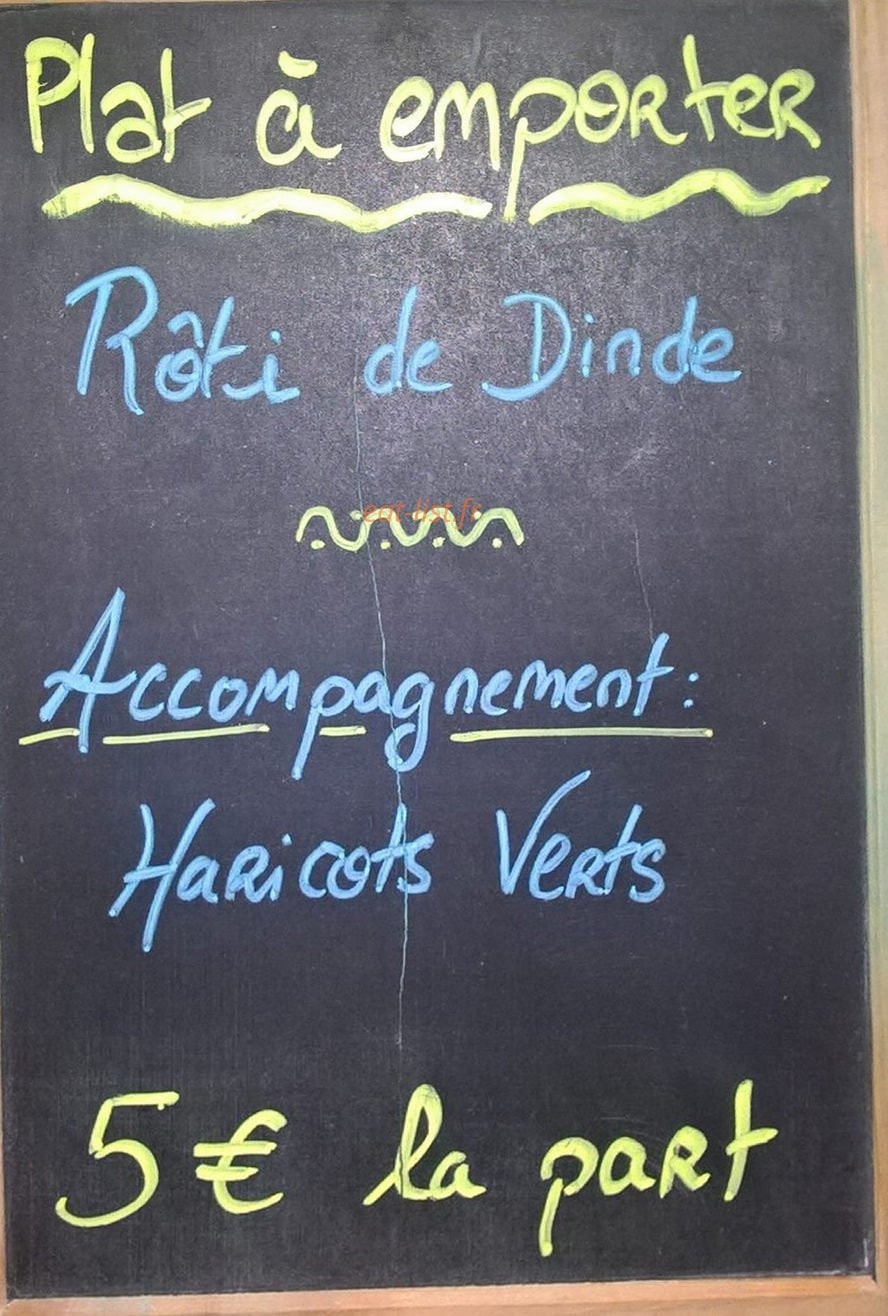 Plat à emporter
Rôti de Dinde
eat-list.fr
Accompagnement:
Haricots Verts
5€ la part